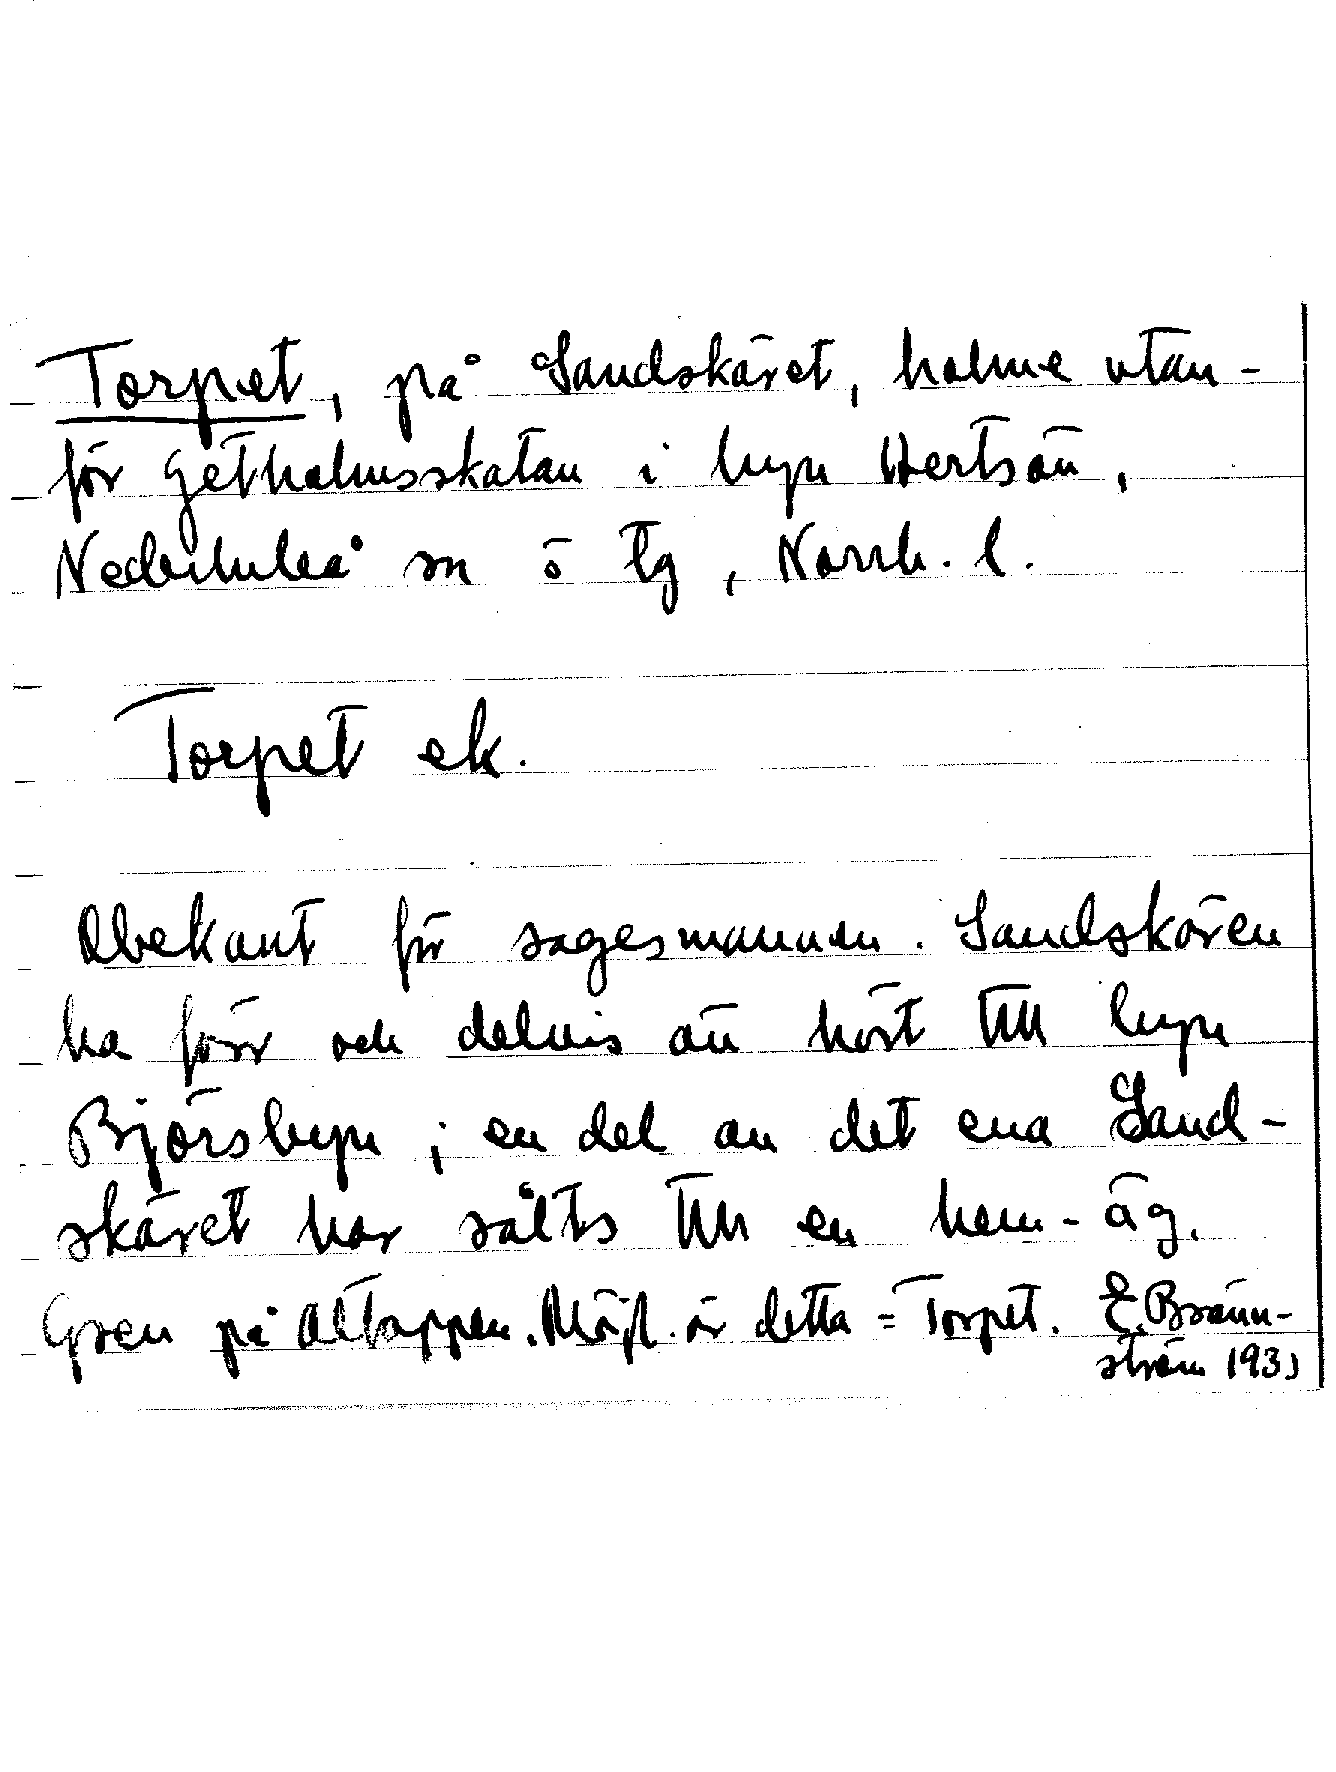 Torpet, på Sandskäret, holme utan-
för Getholmsskatan i byn Hertsön,
Nederluleå sn ö tg, Norrb. l.
Torpet ek.
Obekant för sagesmannen. Sandskären
ha förr och delvis än hört till byn
Björsbyn; en del av det ena Sand-
skäret har sålts till en hem-äg.
Gren på Altappen. Möjl. är detta = Torpet. E. Bränn-
ström